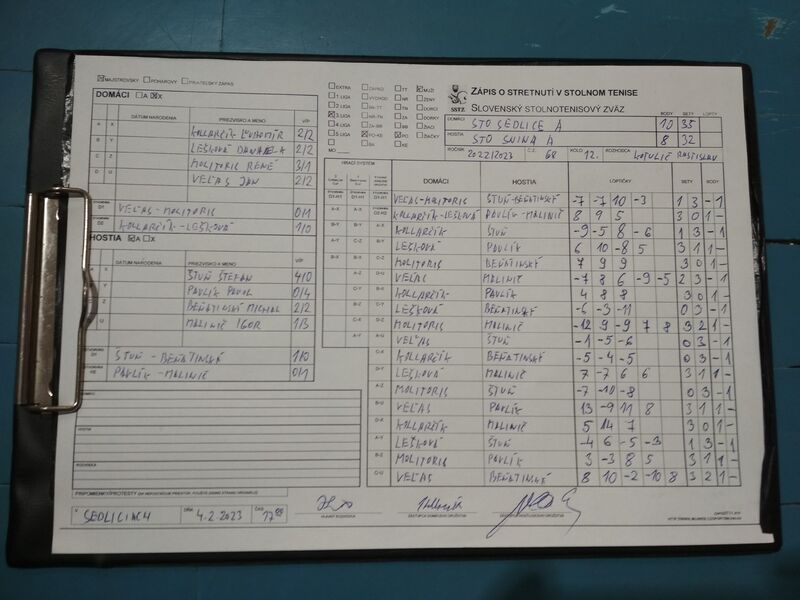 MAJSTROVSKÝ POHÁROVÝ PRIATEĽSKÝ ZÁPAS
DOMÁCI A X
DÁTUM NARODENIA PRIEZVISKO A MENO V/P
A X KOLLARČÍK ĽUBOMÍR 2/2
B Y LEŠKOVÁ DANIELA 2/2
C Z MOLITORIS RENÉ 3/1
D U VEĽAS JÁN 2/2
D1 VEĽAS-MOLITORIS 0/1
D2 KOLLARČÍK-LEŠKOVÁ 1/0
HOSTIA A X
DÁTUM NARODENIA PRIEZVISKO A MENO V/P
X ŠTUŇ ŠTEFAN 4/0
PAVLÍK PAVOL 0/4
Z BEŇATINSKÝ MICHAL 2/2
U MALINIČ IGOR 1/3
ŠTUŇ - BEŇATINSKÝ 1/0
PAVLÍK-MALINIČ 0/1
DOMÁCI
HOSTIA
ROZHODCA
PRIPOMIENKY/PROTESTY
V SEDLICIACH DŇA 4.2 2023 ČAS 17:00
EXTRA
1 LIGA
2 LIGA
3 LIGA
4 LIGA
5 LIGA
MO
MUŽI
ŽENY
DORCI
DORKY
ŽIACI
ŽIAČKY
SSTZ
ZÁPIS O STRETNUTÍ V STOLNOM TENISE
SLOVENSKÝ STOLNOTENISOVÝ ZVÄZ
BODY SETY LOPTY
DOMÁCI STO SEDLICE A 10 35
HOSTIA STO SNINA A 8 32
ROČNÍK 2022/2023 Č.Z. 68 KOLO 12. ROZHODCA LOTULIČ RASTISLAV
HRACÍ SYSTÉM DOMÁCI HOSTIA LOPTIČKY SETY BODY
VEĽAS-MOLITORIS ŠTUŇ-BEŇATINSKÝ -7 -7 10 -3 1 3 - 1
KOLLARČÍK-LEŠKOVÁ PAVLÍK-MALINIČ 8 9 5 3 0 1 -
KOLLARČÍK ŠTUŇ -9 -5 8 -6 1 3 - 1
LEŠKOVÁ PAVLÍK 6 10 -8 5 3 1 1 -
MOLITORIS BEŇATINSKÝ 7 9 9 3 0 1 -
VEĽAS MALINIČ -7 8 6 -9 -5 2 3 - 1
KOLLARČÍK PAVLÍK 4 8 8 3 0 1 -
LEŠKOVÁ BEŇATINSKÝ -6 -3 -11 0 3 - 1
MOLITORIS MALINIČ -12 9 -9 7 8 3 2 1 -
VEĽAS ŠTUŇ -1 -5 -6 0 3 - 1
KOLLARČÍK BEŇATINSKÝ -5 -4 -5 0 3 - 1
LEŠKOVÁ MALINIČ 7 -7 6 6 3 1 1 -
MOLITORIS ŠTUŇ -7 -10 -8 0 3 - 1
VEĽAS PAVLÍK 13 -9 11 8 3 1 1 -
KOLLARČÍK MALINIČ 5 14 7 3 0 1 -
LEŠKOVÁ ŠTUŇ -4 6 -5 -3 1 3 - 1
MOLITORIS PAVLÍK 3 -3 8 5 3 1 1 -
VEĽAS BEŇATINSKÝ 8 10 -2 -10 8 3 2 1 -